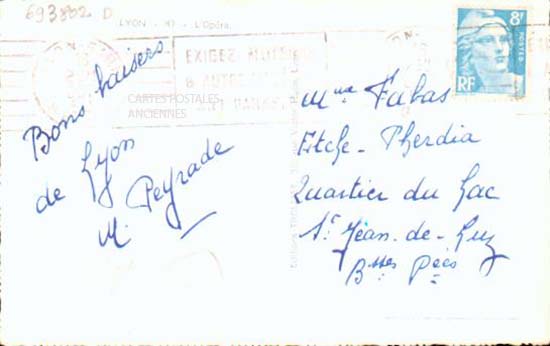 693832 D
LYON - 47 - L'Opéra.
EXIGEZ
& AUTRES
CARTES POSTALES
ANCIENNES
Bons baisers
de Lyon
M. Peyrade
8F
POSTES
RF
Mme Fabas
Etche-Pherdia
Quartier du Lac
St Jean-de-Luz
Bsses Pées